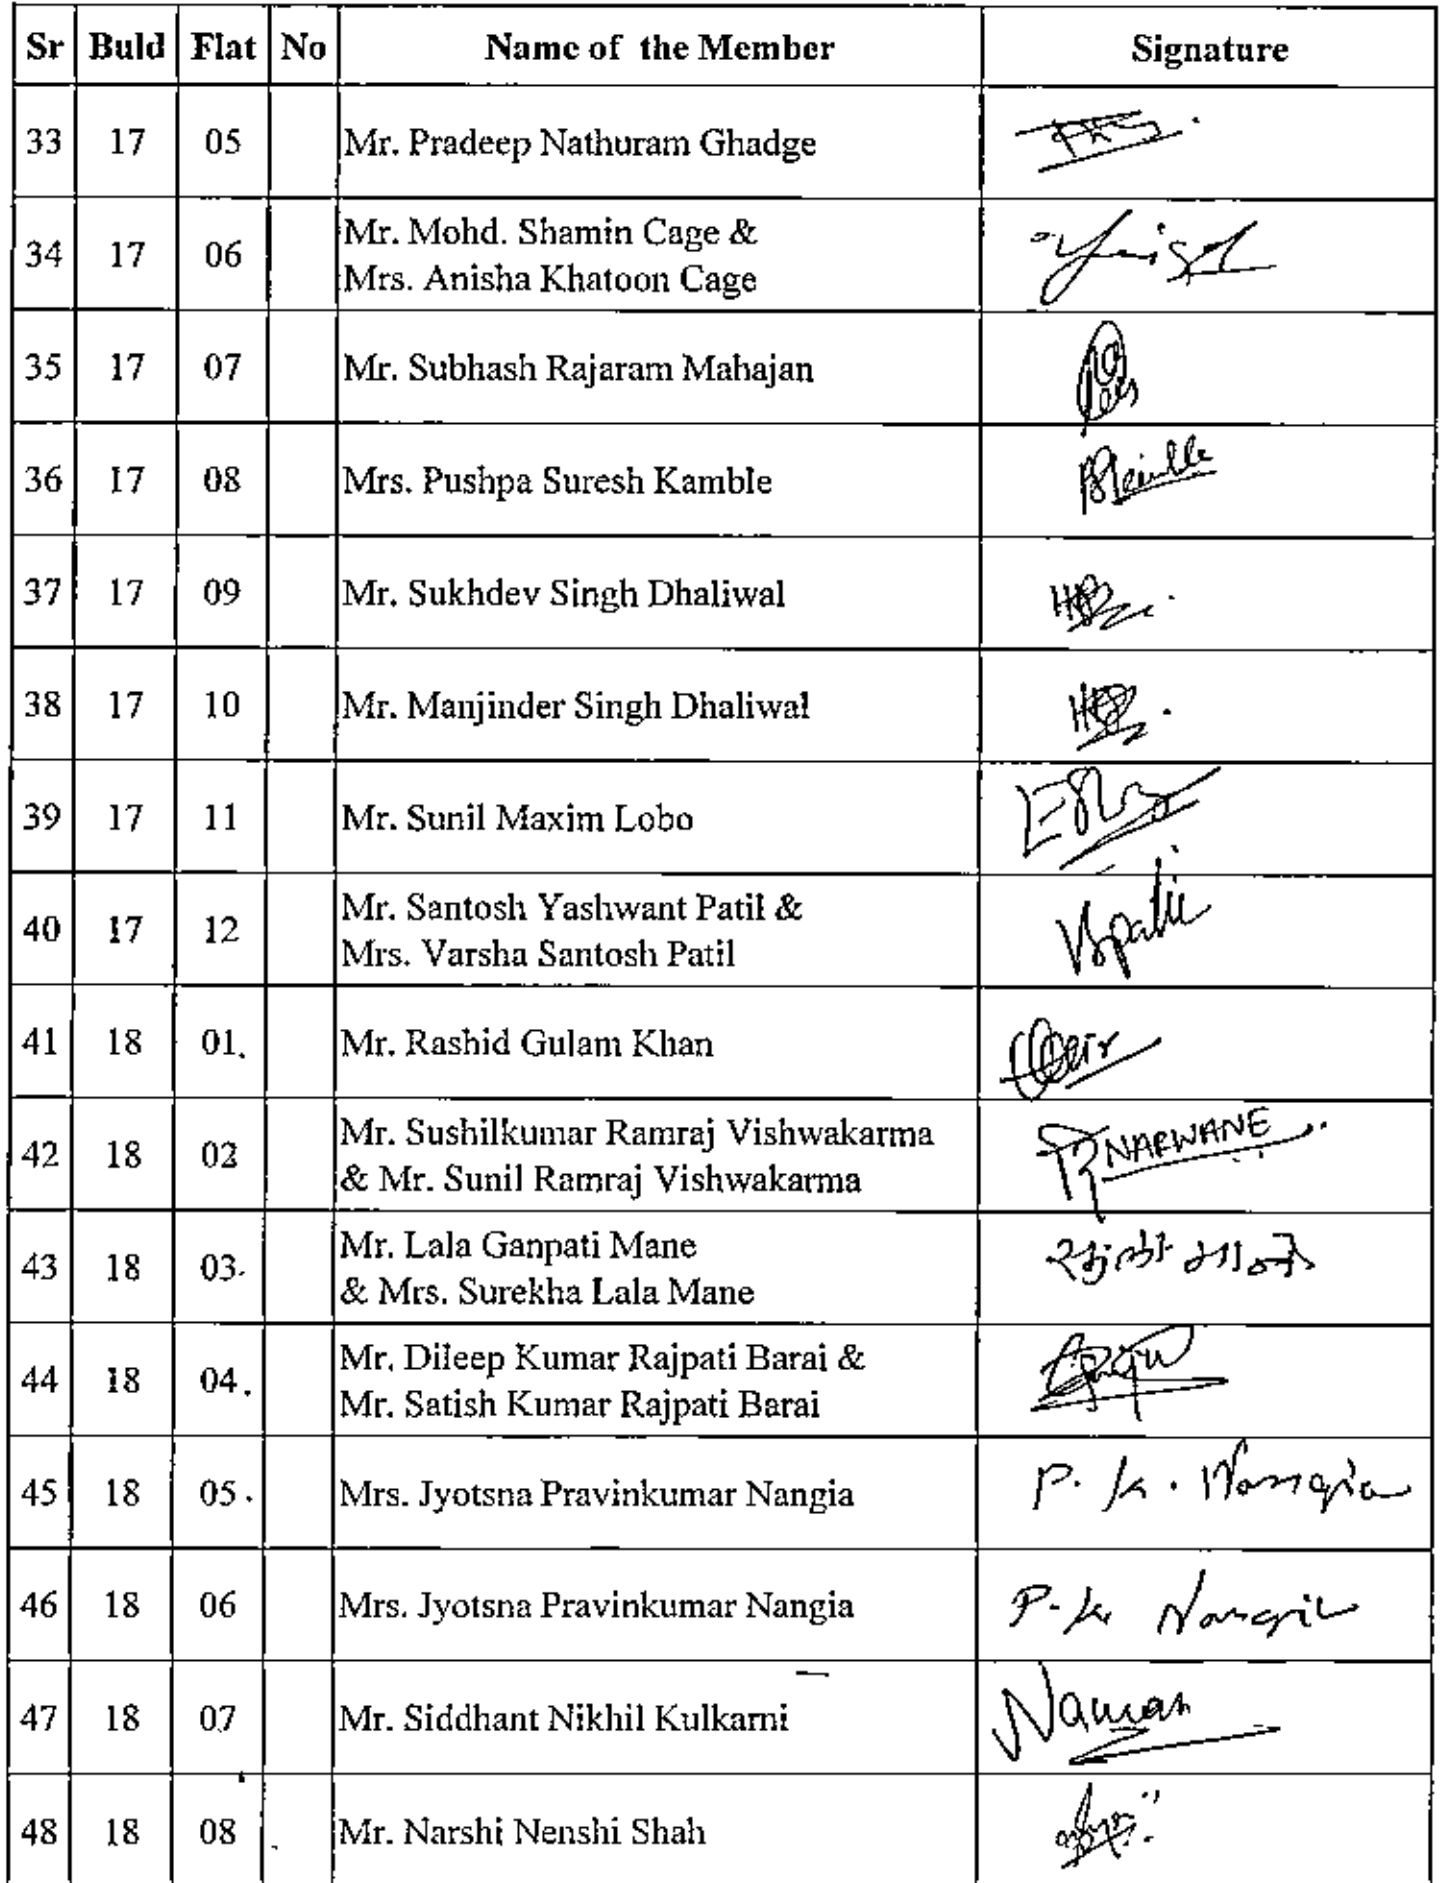 Sr Buld Flat No Name of the Member Signature
33 17 05 Mr. Pradeep Nathuram Ghadge
34 17 06 Mr. Mohd. Shamin Cage &
Mrs. Anisha Khatoon Cage
35 17 07 Mr. Subhash Rajaram Mahajan
36 17 08 Mrs. Pushpa Suresh Kamble
37 17 09 Mr. Sukhdev Singh Dhaliwal
38 17 10 Mr. Manjinder Singh Dhaliwal
39 17 11 Mr. Sunil Maxim Lobo
40 17 12 Mr. Santosh Yashwant Patil &
Mrs. Varsha Santosh Patil
41 18 01. Mr. Rashid Gulam Khan
42 18 02 Mr. Sushilkumar Ramraj Vishwakarma
& Mr. Sunil Ramraj Vishwakarma
NARWANE
43 18 03. Mr. Lala Ganpati Mane
& Mrs. Surekha Lala Mane
माने
44 18 04. Mr. Dileep Kumar Rajpati Barai &
Mr. Satish Kumar Rajpati Barai
45 18 05. Mrs. Jyotsna Pravinkumar Nangia P. K. Nangia
46 18 06 Mrs. Jyotsna Pravinkumar Nangia P. K. Nangia
47 18 07 Mr. Siddhant Nikhil Kulkarni Naman
48 18 08 Mr. Narshi Nenshi Shah